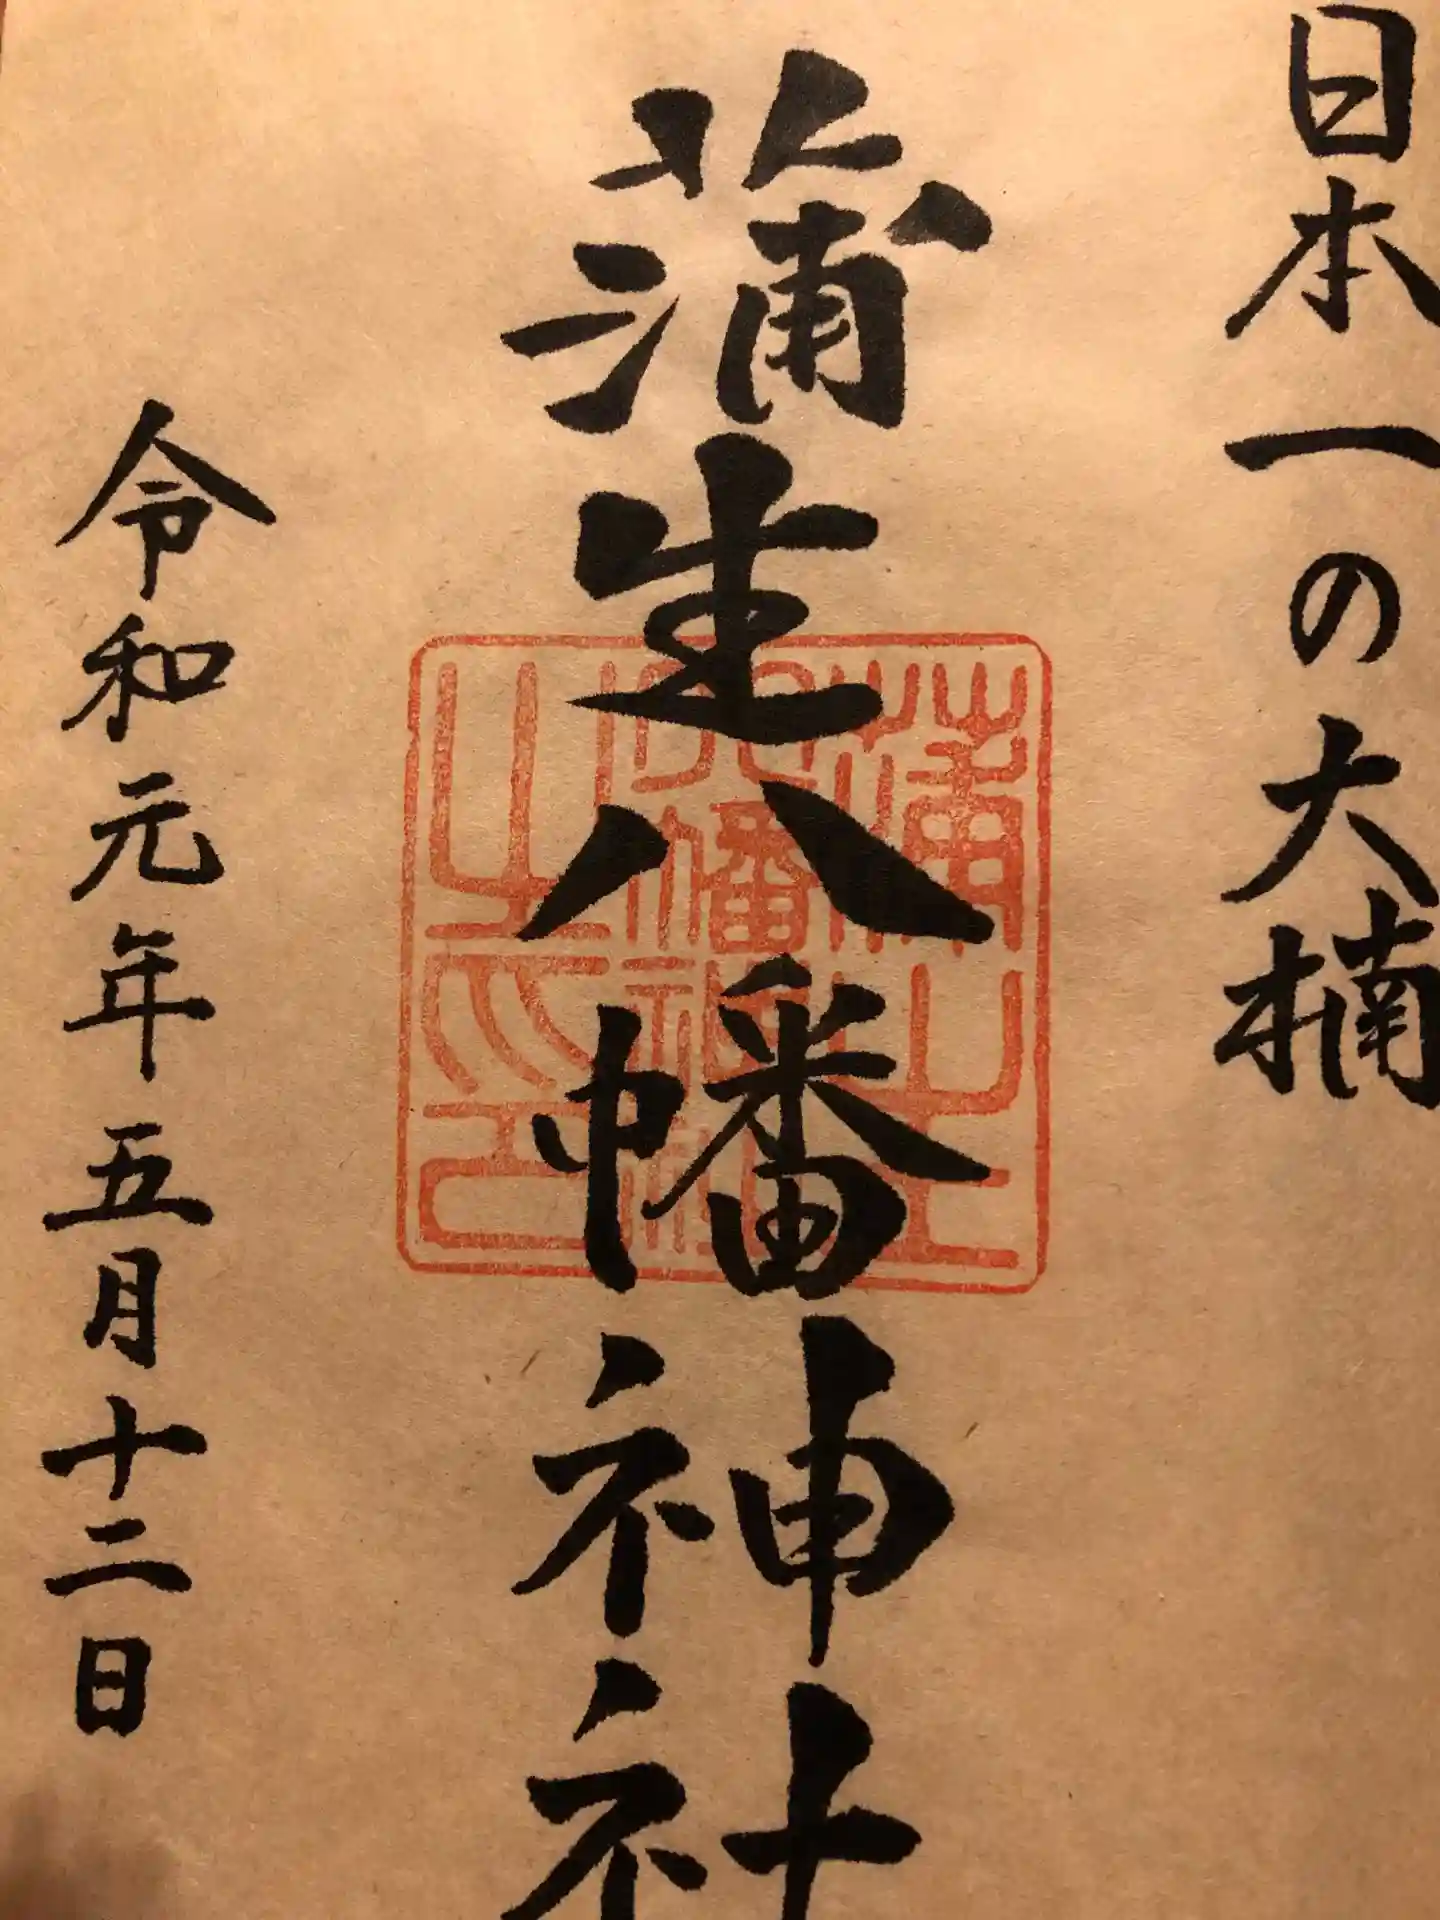 日本一の大楠
蒲生八幡神社
令和元年五月十二日
蒲生
八幡神社
之印